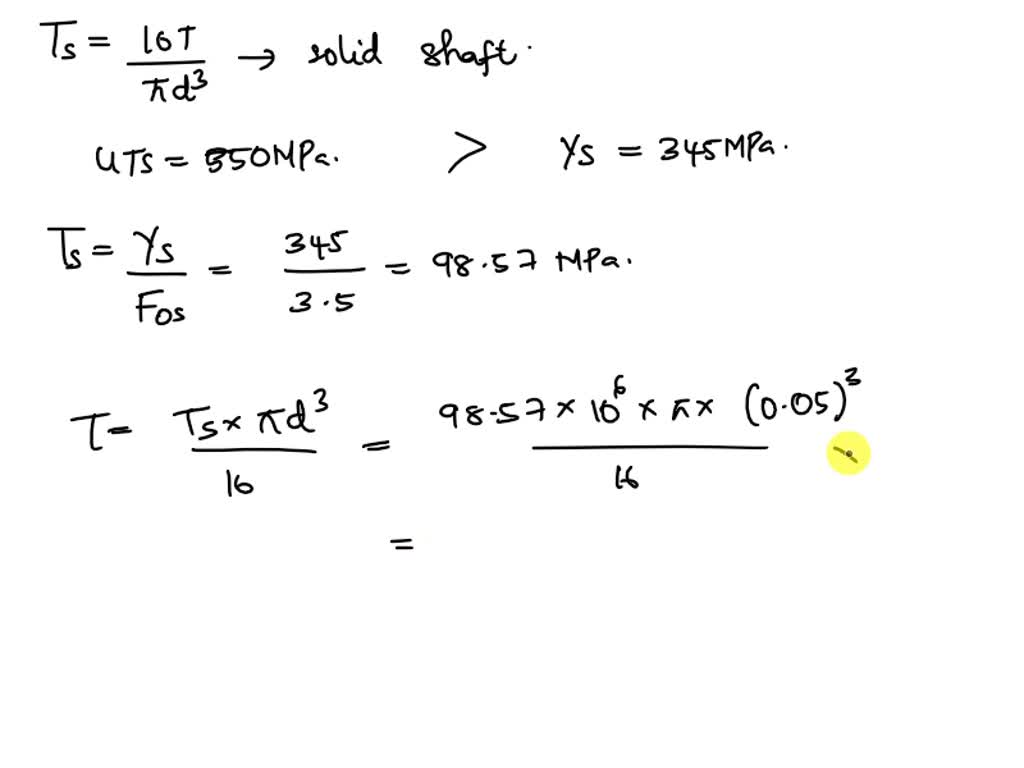 Ts = 16T / πd³ → solid shaft.
UTS = 550MPa. > YS = 345MPa.
Ts = YS / FOS = 345 / 3.5 = 98.57 MPa.
T = Ts × πd³ / 16 = 98.57 × 10⁶ × π × (0.05)³ / 16
=